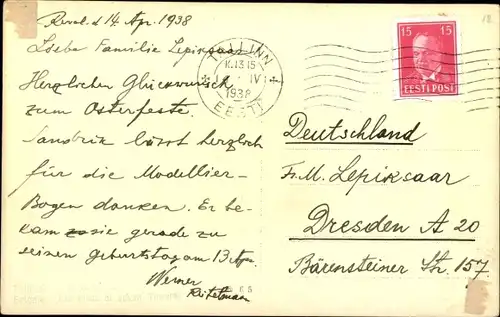 Reval. d 14 Apr. 1938
Liebe Familie Lepiksaar
Herzlichen Glückwunsch
zum Osterfeste.
lässt herzlich
für die Modellier-
Bogen danken. Er be-
kam sie gerade zu
seinem Geburtstag am 13 Apr.
Werner
TALLINN
14. IV
1938
EESTI
15 15
EESTI POST
Deutschland
Fr. M. Lepiksaar
Dresden A 20
Bärensteiner Str. 157